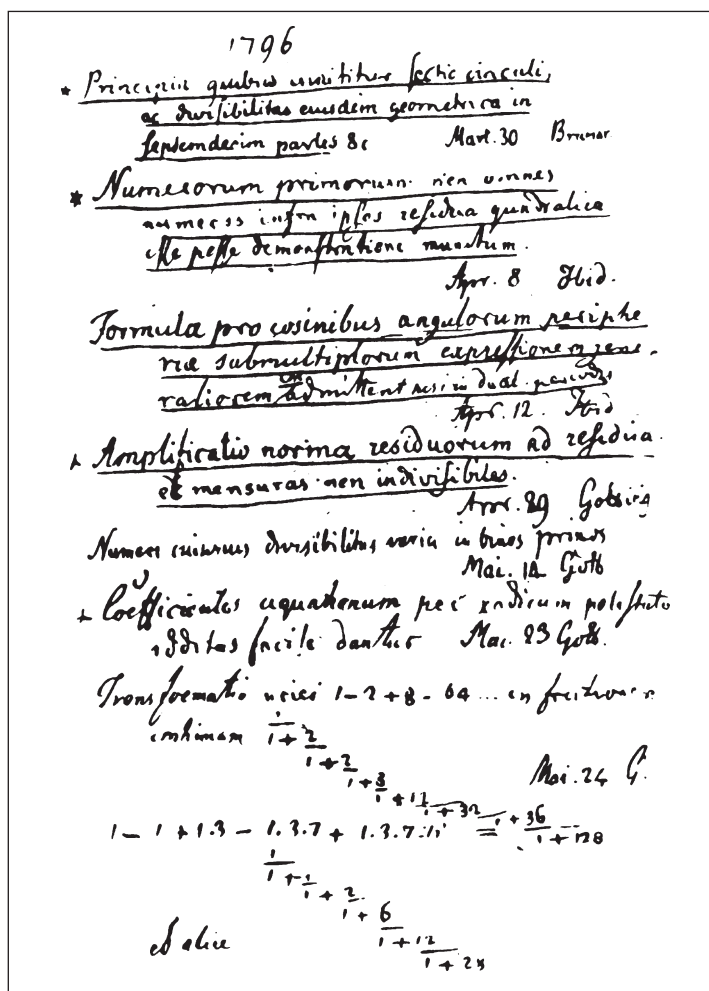 1796
* Principia quibus innititur sectio circuli,
ac divisibilitas eiusdem geometrica in
septemdecim partes &c Mart. 30 Brunsv
* Numerorum primorum non omnes
numeros infra ipsos residua quadratica
esse posse demonstratione munitum.
Apr. 8 Ibid.
Formula pro cosinibus angulorum periphe
riae submultiplorum expressionem gene
raliorem admittent nisi in duab. periodis
Apr. 12. Ibid
+ Amplificatio norma residuorum ad residua
et mensuras non indivisibiles.
Apr. 29 Gotting
Numeri cuiusvis divisibilitas varia in binos primos
Mai. 14 Gott
+ Coefficientes aequationum per radicum potestates
additas facile dantur Mai. 23 Gott.
Transformatio seriei 1 - 2 + 8 - 64 ... in fractionem
continuam 1
1 + 2
1 + 2
1 + 8
1 + 12
1 + 32
1 + 36
1 + 128
Mai. 24 G.
1 - 1 + 1.3 - 1.3.7 + 1.3.7.15 =
1
1 + 1
1 + 2
1 + 6
1 + 12
1 + 28
et aliae